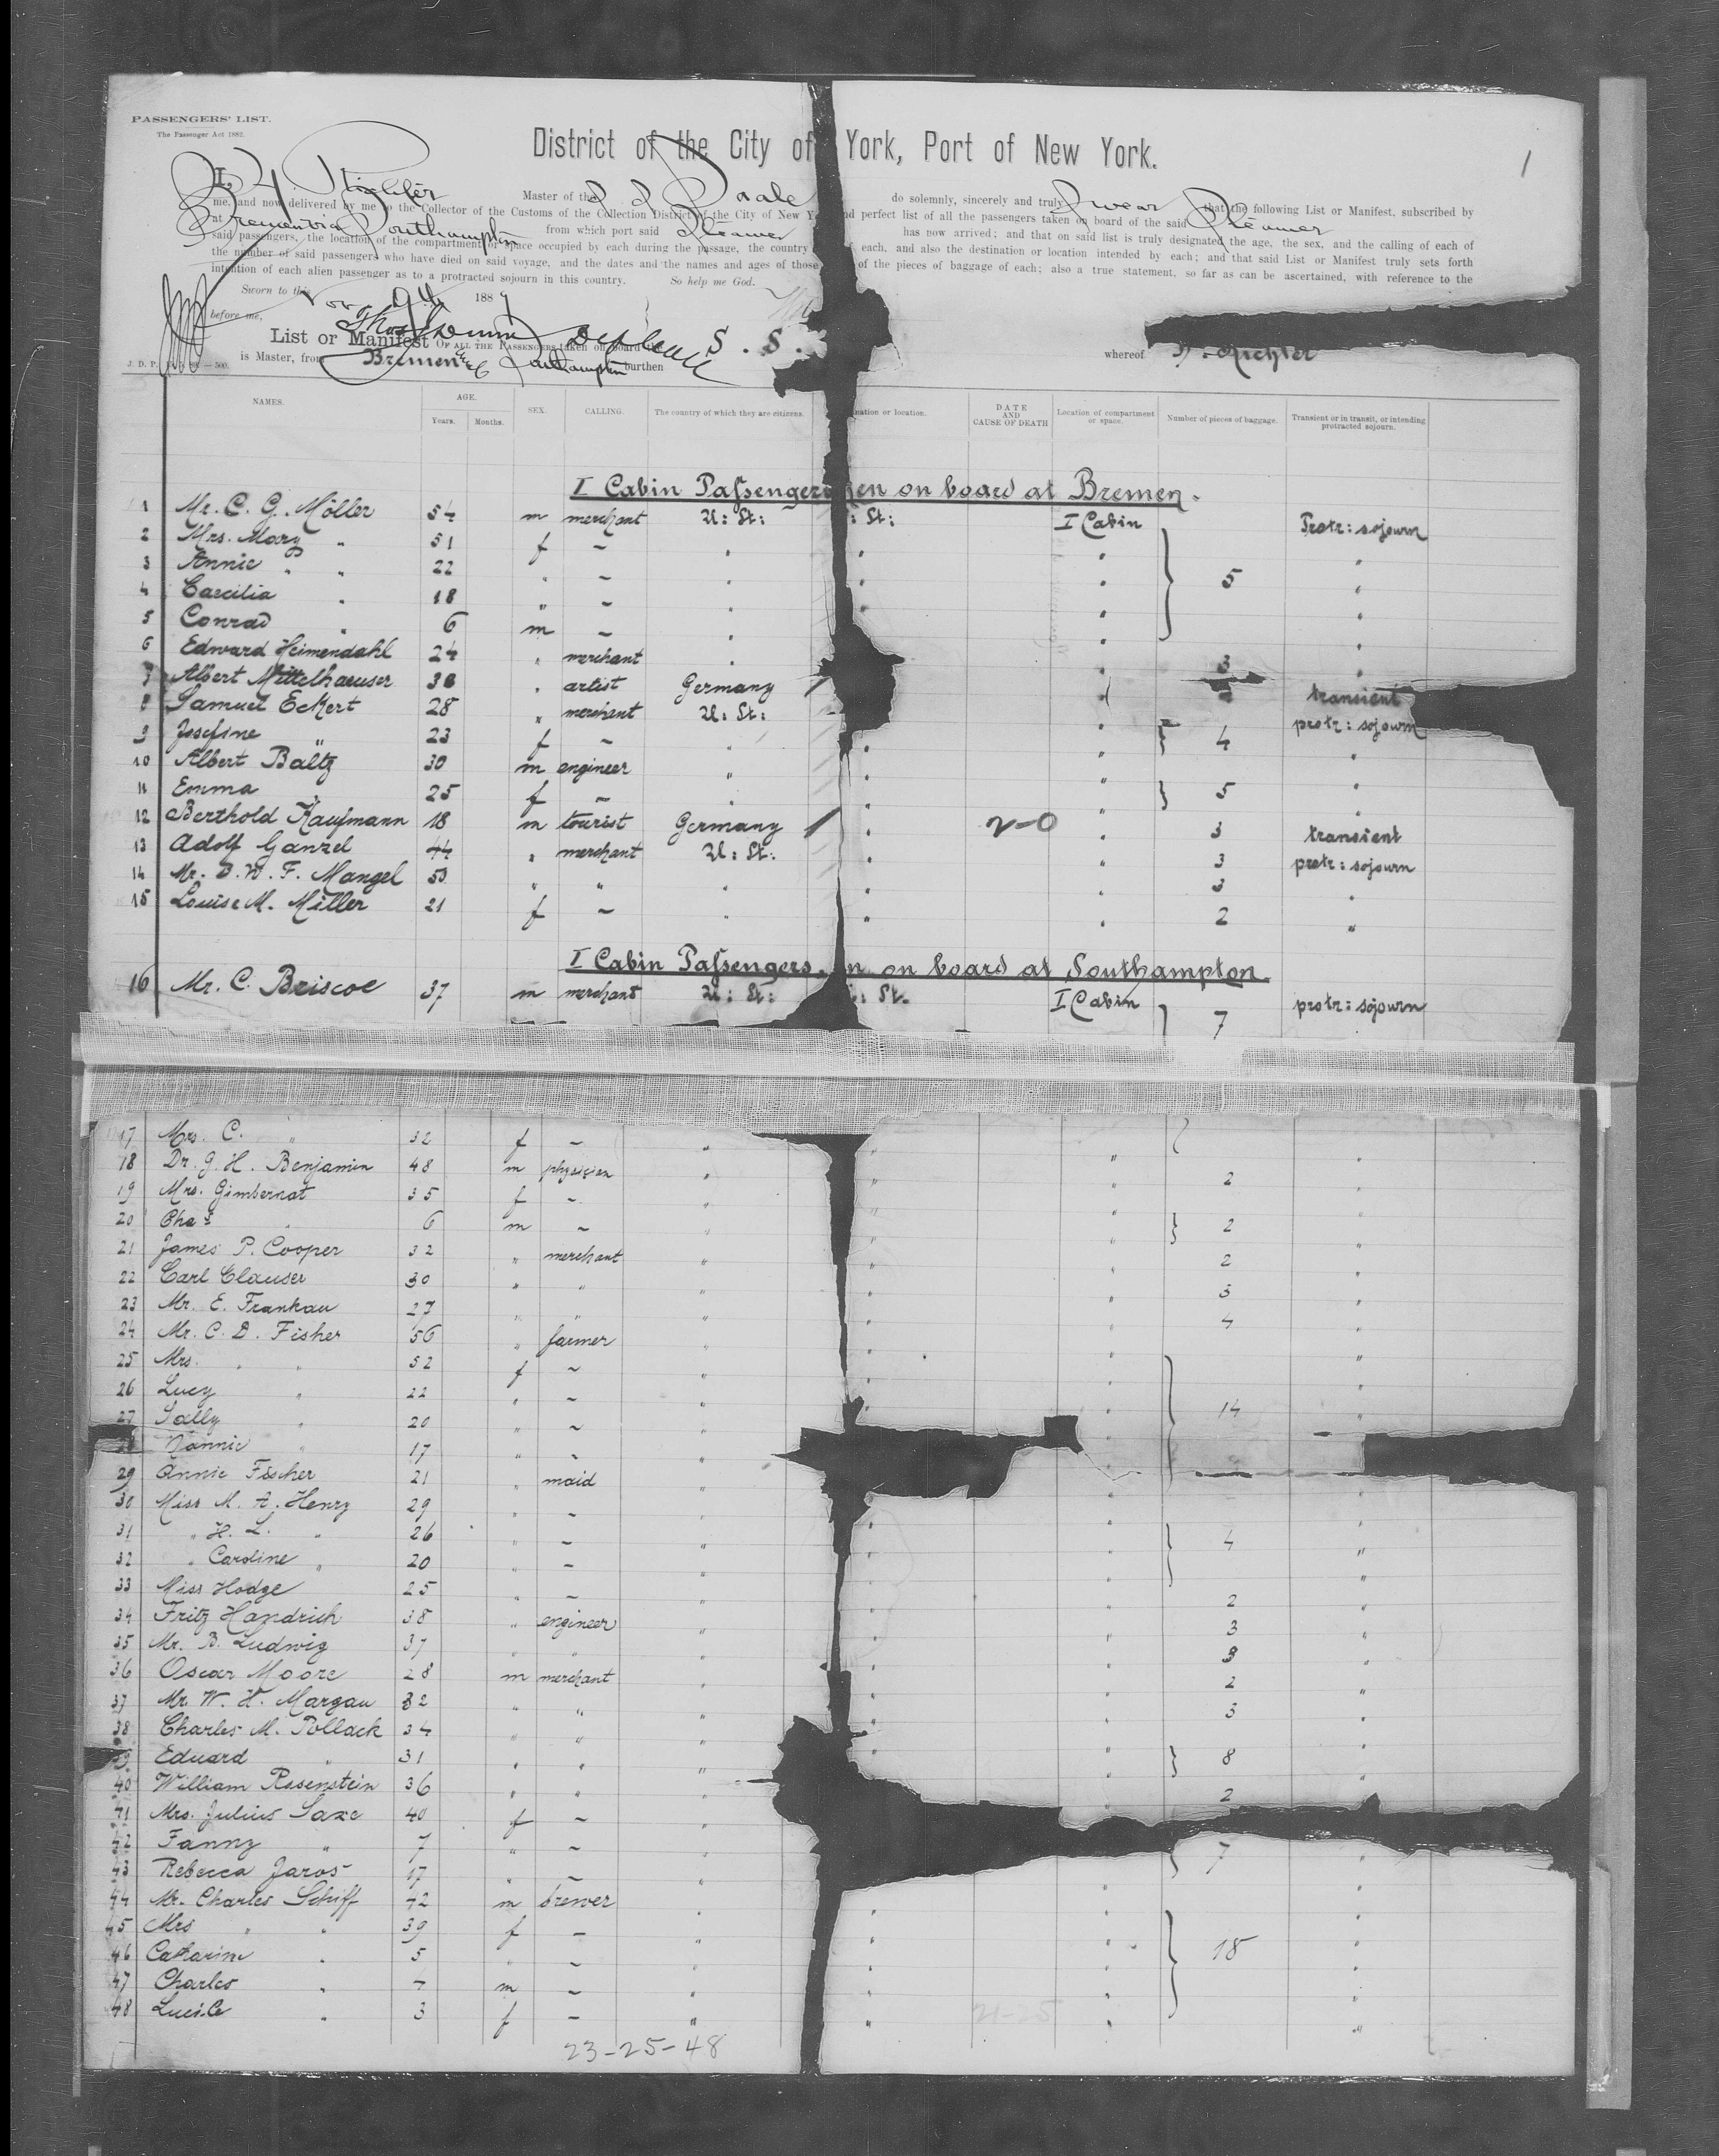 PASSENGERS' LIST.
The Passenger Act 1882.
1
District of the City of York, Port of New York.
I, Richter Master of the S. S. Saale do solemnly, sincerely and truly Swear that the following List or Manifest, subscribed by
me, and now delivered by me to the Collector of the Customs of the Collection District of the City of New Y nd perfect list of all the passengers taken on board of the said Steamer
at Bremen via Southampton from which port said Steamer has now arrived; and that on said list is truly designated the age, the sex, and the calling of each of
said passengers, the location of the compartment or space occupied by each during the passage, the country each, and also the destination or location intended by each; and that said List or Manifest truly sets forth
the number of said passengers who have died on said voyage, and the dates and the names and ages of those of the pieces of baggage of each; also a true statement, so far as can be ascertained, with reference to the
intention of each alien passenger as to a protracted sojourn in this country. So help me God.
Sworn to this Nov 9th 1889
before me,
List or Manifest OF ALL THE PASSENGERS taken on board the S. S.
is Master, from Bremen Southampton burthen whereof Richter
NAMES. AGE. Years. Months. SEX. CALLING. The country of which they are citizens. nation or location. DATE AND CAUSE OF DEATH Location of compartment or space. Number of pieces of baggage. Transient or in transit, or intending protracted sojourn.
I Cabin Passengers en on board at Bremen.
1 Mr. C. G. Möller 54 m merchant U: St: : St: I Cabin Protr: sojourn
2 Mrs. Mary " 51 f ~ " " " "
3 Annie " " 22 " ~ " " " 5 "
4 Caecilia " 18 " ~ " " " "
5 Conrad " 6 m ~ " " " "
6 Edward Heimendahl 24 " merchant " " 3 "
7 Albert Mittelhaeuser 38 " artist Germany " transient
8 Samuel Eckert 28 " merchant U: St: protr: sojourn
9 Josefine " 23 f ~ " " " 4 "
10 Albert Baltz 30 m engineer " " " "
11 Emma " 25 f ~ " " " 5 "
12 Berthold Kaufmann 18 m tourist Germany " 2-0 " 3 transient
13 Adolf Ganzel 44 " merchant U: St. " " 3 protr: sojourn
14 Mr. D. W. F. Mangel 53 " " " " " 3 "
15 Louise M. Miller 21 f ~ " " " 2 "
I Cabin Passengers n on board at Southampton.
16 Mr. C. Briscoe 37 m merchant U: St: : St. I Cabin 7 protr: sojourn
17 Mrs. C. " 32 f ~ " " " "
18 Dr. G. H. Benjamin 48 m physician " " " 2 "
19 Mrs. Gimbernat 35 f ~ " " " "
20 Chas " 6 m ~ " " " 2 "
21 James P. Cooper 32 " merchant " " " 2 "
22 Carl Clauser 30 " " " " " 3 "
23 Mr. E. Frankau 27 " " " " " 4 "
24 Mr. C. D. Fisher 56 " farmer " " " "
25 Mrs. " " 52 f ~ " " " "
26 Lucy " 22 " ~ " " " 14 "
27 Sally " 20 " ~ " "
Nannie " 17 " ~ "
29 Annie Fischer 21 " maid " "
30 Miss M. A. Henry 29 " ~ " " " "
31 " H. L. " 26 " ~ " " " 4 "
32 " Caroline " 20 " ~ " " " "
33 Miss Hodge 25 " ~ " " " 2 "
34 Fritz Handrich 38 " engineer " " " 3 "
35 Mr. B. Ludwig 37 " " " " " 3 "
36 Oscar Moore 28 m merchant " " " 2 "
37 Mr. W. H. Margau 32 " " " " " 3 "
38 Charles M. Pollack 34 " " " " " "
Eduard " 31 " " " " 8 "
40 William Rosenstein 36 " " " " 2 "
41 Mrs. Julius Saxe 40 f ~ "
42 Fanny " 7 " ~ " 7 "
43 Rebecca Jaros 17 " ~ " " "
44 Mr. Charles Schiff 42 m brewer " " " "
45 Mrs " " 39 f ~ " " " "
46 Catharine " 5 " ~ " " " 18 "
47 Charles " 7 m ~ " " " "
48 Lucile " 3 f ~ " " " "
21-25
23-25-48